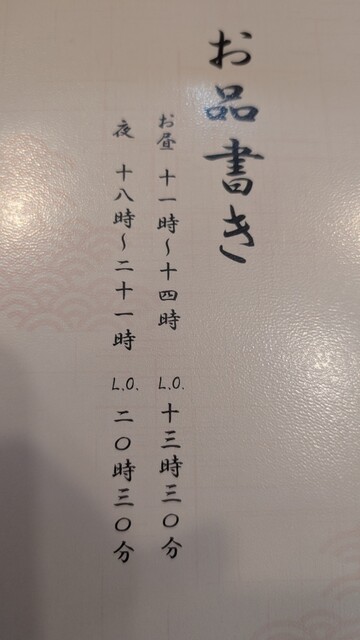 お品書き
お昼 十一時～十四時 L.O. 十三時三〇分
夜 十八時～二十一時 L.O. 二〇時三〇分